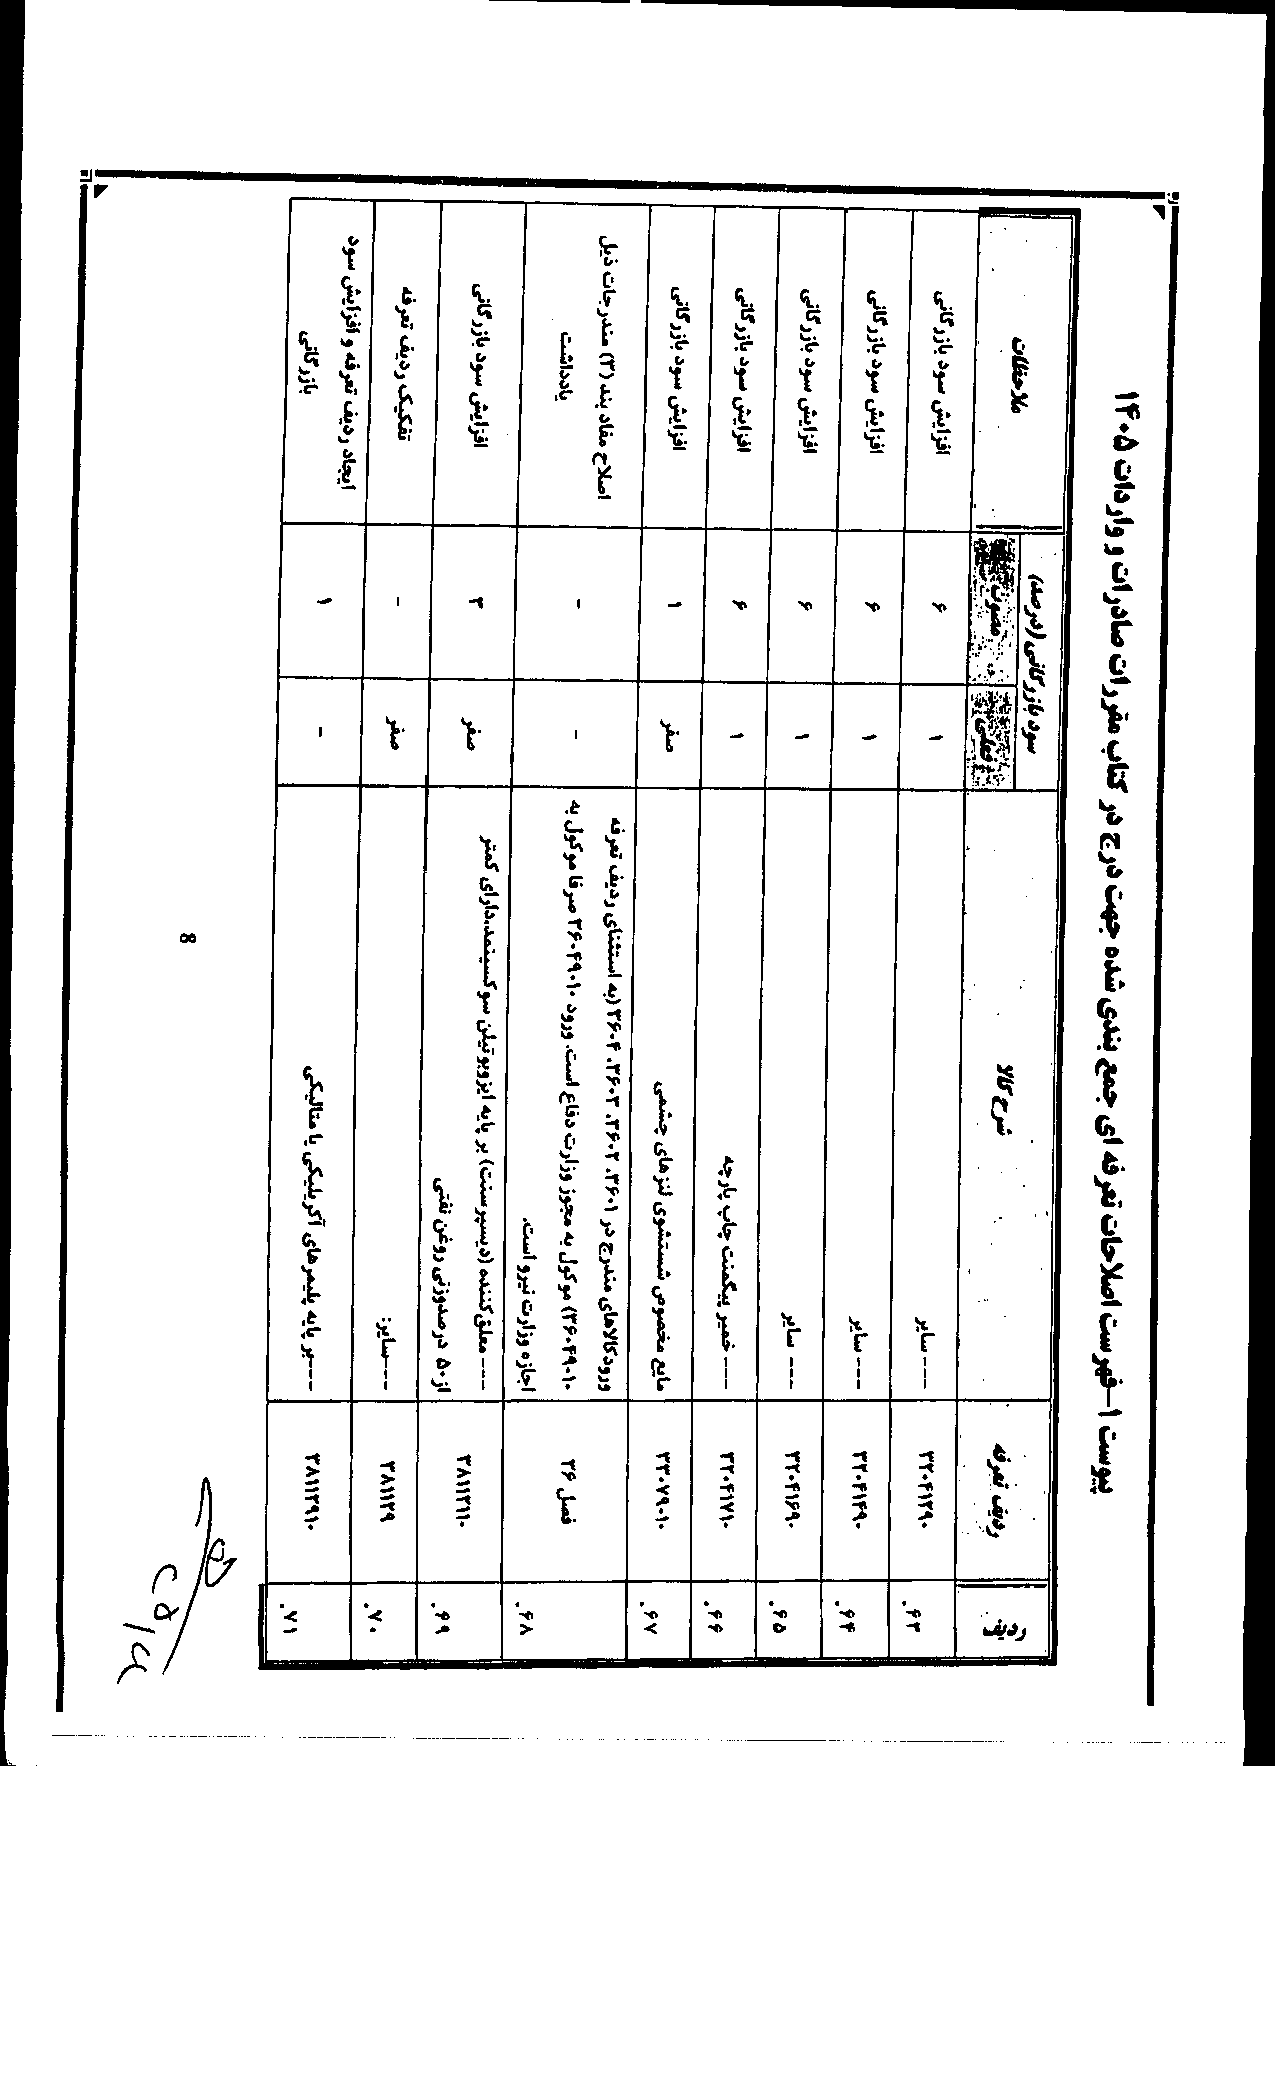 پیوست ۱-فهرست اصلاحات تعرفه ای جمع بندی شده جهت درج در کتاب مقررات صادرات و واردات ۱۴۰۵
ردیف ردیف تعرفه شرح کالا سود بازرگانی (درصد) ملاحظات
فعلی مصوب
۶۳. ۳۲۰۴۱۲۹۰ --- سایر ۱ ۶ افزایش سود بازرگانی
۶۴. ۳۲۰۴۱۴۹۰ --- سایر ۱ ۶ افزایش سود بازرگانی
۶۵. ۳۲۰۴۱۶۹۰ --- سایر ۱ ۶ افزایش سود بازرگانی
۶۶. ۳۲۰۴۱۷۱۰ --- خمیر پیگمنت چاپ پارچه ۱ ۶ افزایش سود بازرگانی
۶۷. ۳۳۰۷۹۰۱۰ مایع مخصوص شستشوی لنزهای چشمی صفر ۱ افزایش سود بازرگانی
۶۸. فصل ۳۶ ورودکالاهای مندرج در ۳۶۰۱، ۳۶۰۲، ۳۶۰۳، ۳۶۰۴ (به استثنای ردیف تعرفه
۳۶۰۴۹۰۱۰) موکول به مجوز وزارت دفاع است. ورود ۳۶۰۴۹۰۱۰ صرفا موکول به
اجازه وزارت نیرو است. - - اصلاح مفاد بند (۳) مندرجات ذیل
یادداشت
۶۹. ۳۸۱۱۲۱۱۰ --- معلق‌کننده (دیسپرسنت) بر پایه ایزوبوتیلن سوکسینمد،دارای کمتر
از ۵۰ درصدوزنی روغن نفتی صفر ۳ افزایش سود بازرگانی
۷۰. ۳۸۱۱۲۹ ---سایر: صفر - تفکیک ردیف تعرفه
۷۱. ۳۸۱۱۲۹۱۰ ---بر پایه پلیمرهای آکریلیکی یا متالیکی - ۱ ایجاد ردیف تعرفه و افزایش سود
بازرگانی
8